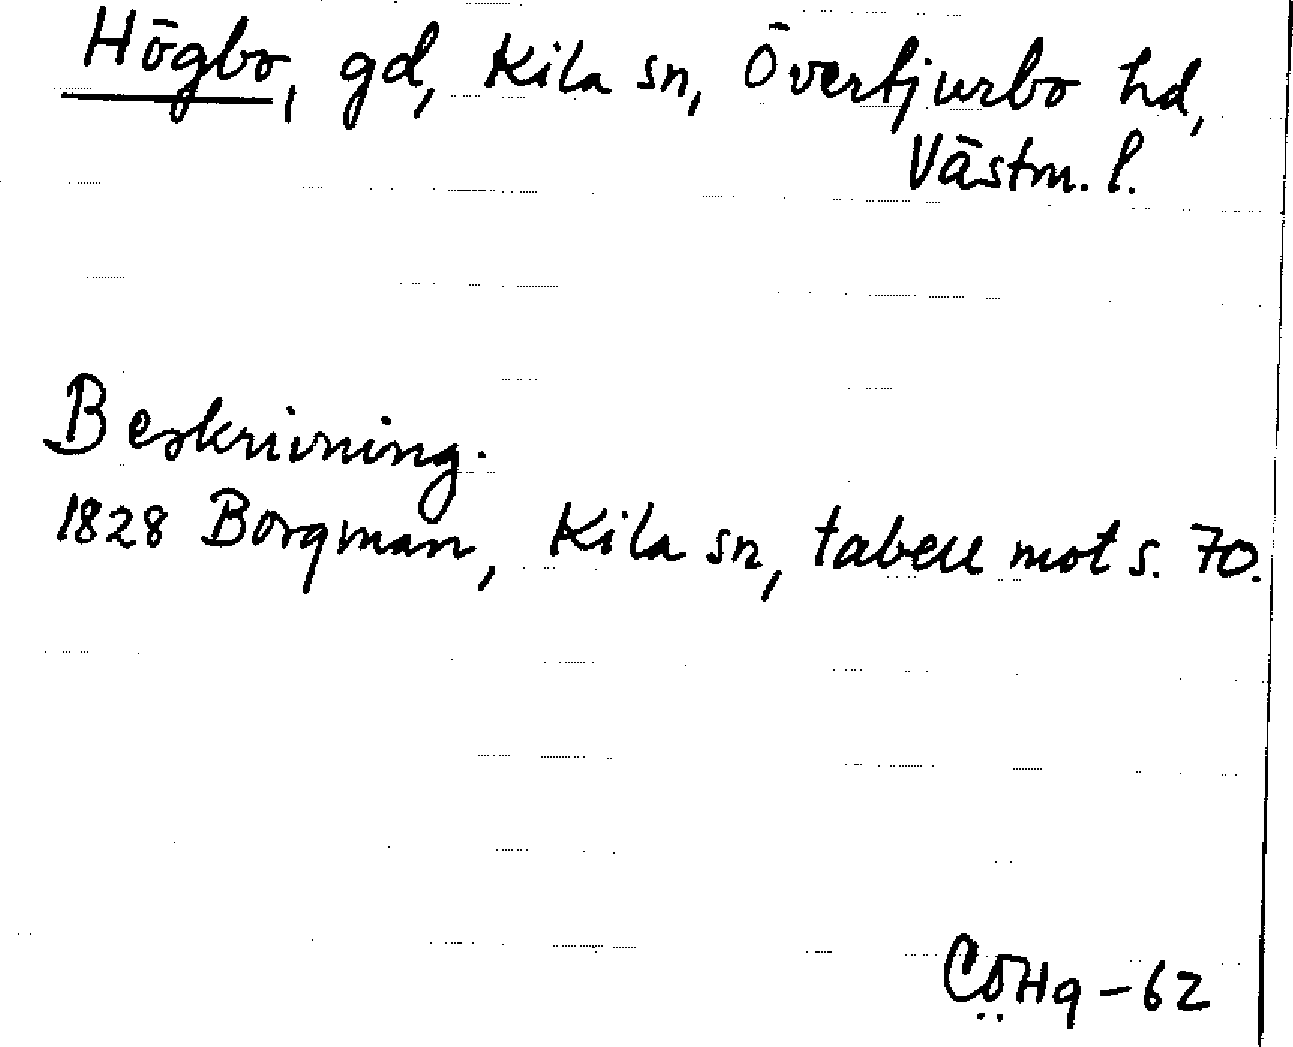 Högbo, gd, Kila sn, Övertjurbo hd,
Västm. l.
Beskrivning.
1828 Borgman, Kila sn, tabell mot s. 70.
CÖHg-62